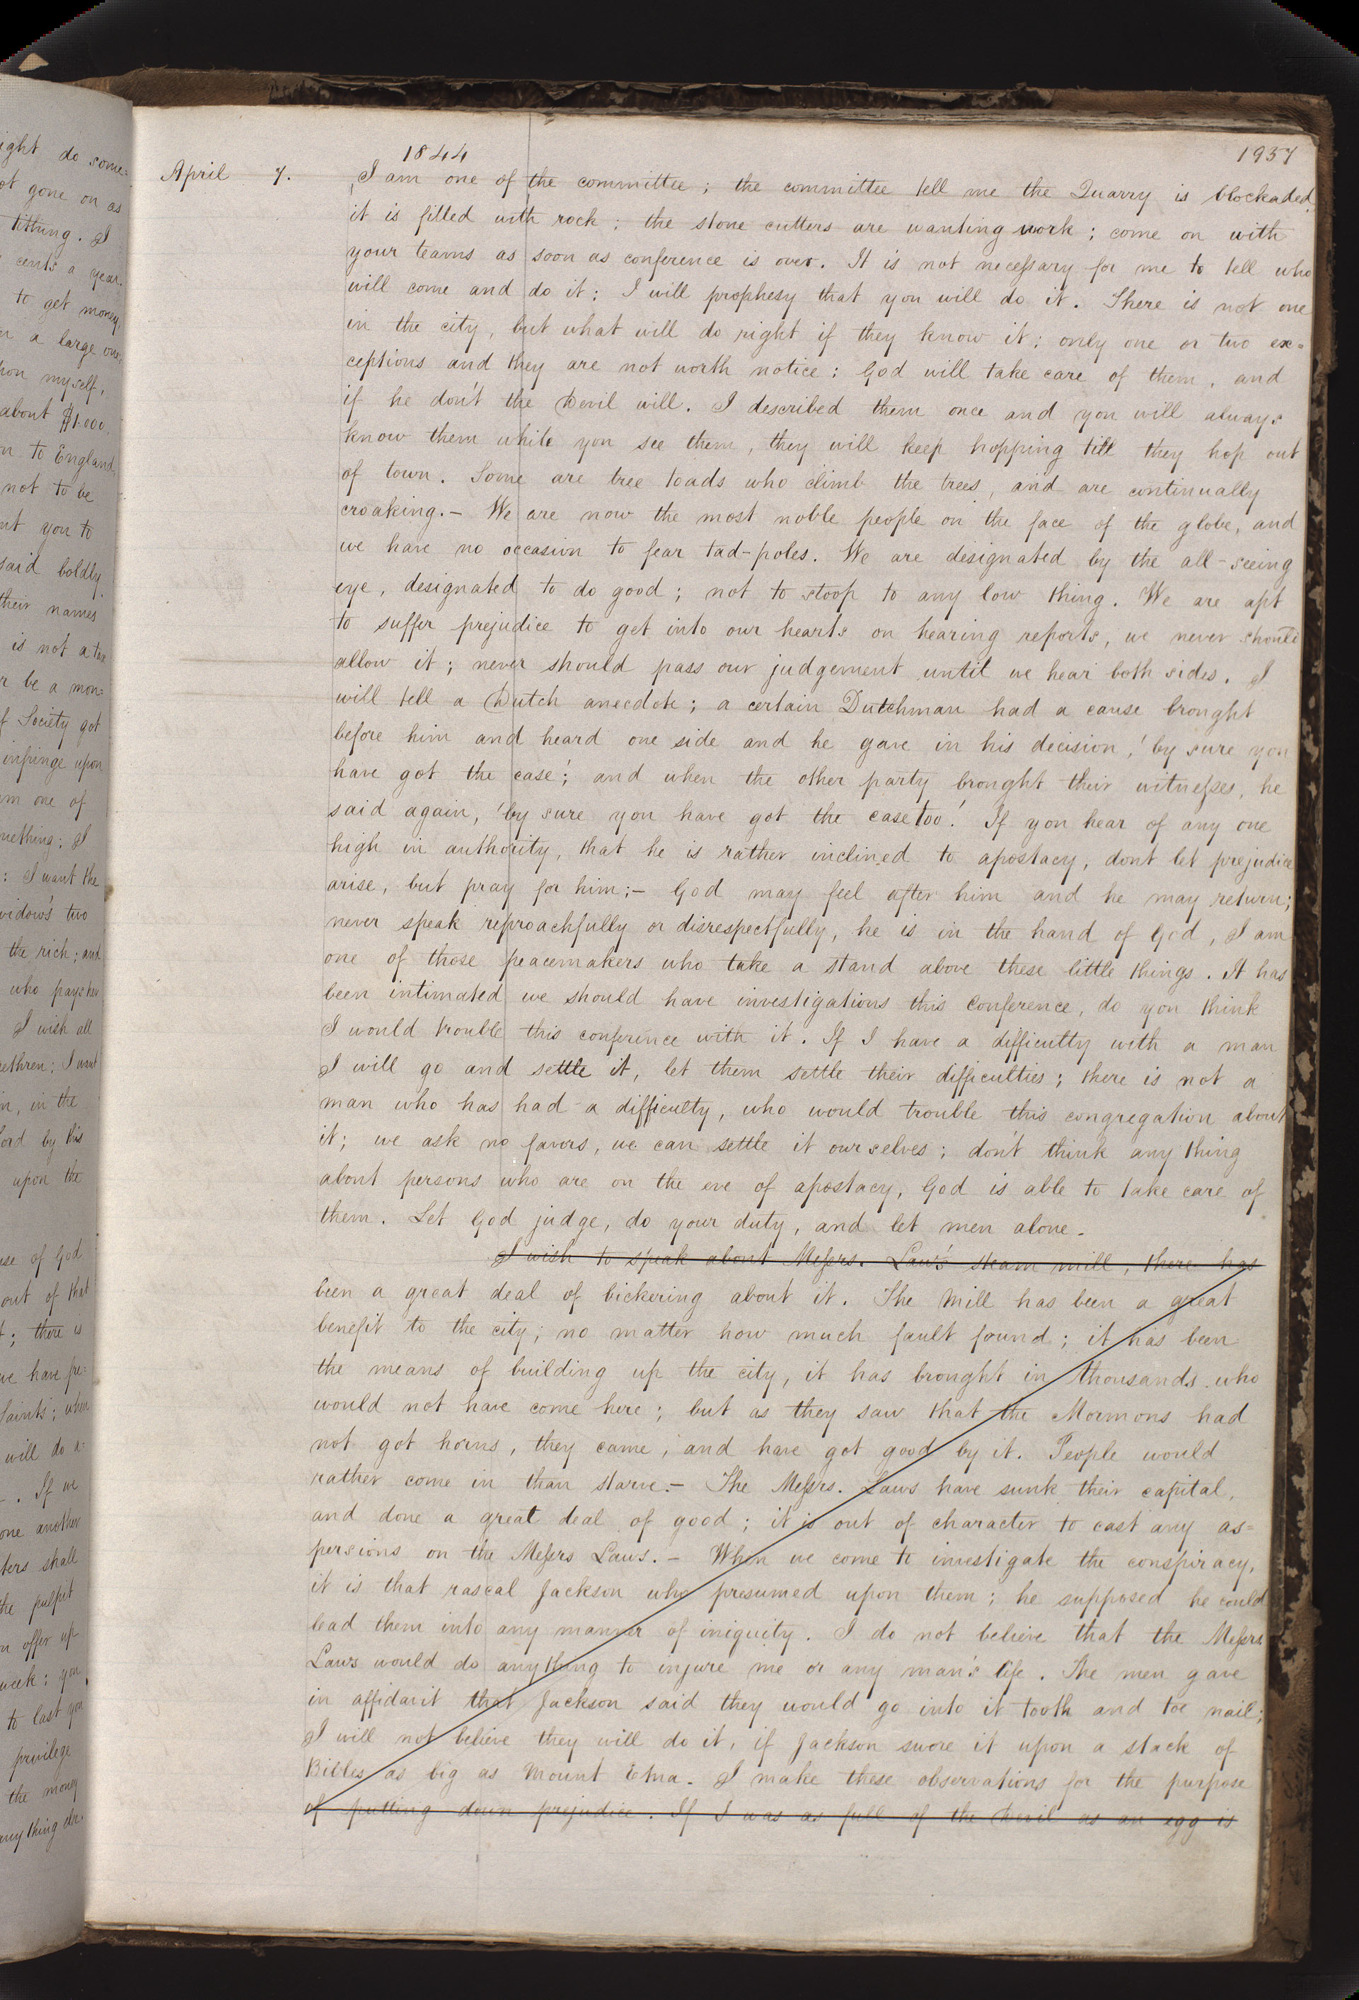 ight do some=
ot gone on as
tithing. I
cents a year.
to get money,
n a large one,
pon myself,
about $1.000.
on to England
not to be
nt you to
said boldly
their names
is not a tax
r be a mon=
f Society got
infringe upon
m one of
mething; I
: I want the
widow's two
the rich; and
who pays her
I wish all
rethren; I want
in, in the
Lord by this
upon the
use of God
out of that
t; there is
we have pre=
Saints; when
will do a=
. If we
one another
ters shall
the pulpit
n offer up-
week; you
to last you
privilege
the money
anything else.
1844
1957
April 7. I am one of the committee; the committee tell me the Quarry is blockaded,
it is filled with rock; the stone cutters are wanting work; come on with
your teams as soon as conference is over. It is not necessary for me to tell who
will come and do it; I will prophesy that you will do it. There is not one
in the city, but what will do right if they know it; only one or two ex=
ceptions and they are not worth notice; God will take care of them, and
if he don't the Devil will. I described them once and you will always
know them while you see them, they will keep hopping till they hop out
of town. Some are tree toads who climb the trees, and are continually
croaking.— We are now the most noble people on the face of the globe, and
we have no occasion to fear tad-poles. We are designated by the all-seeing
eye, designated to do good; not to stoop to any low thing. We are apt
to suffer prejudice to get into our hearts on hearing reports, we never should
allow it; never should pass our judgement until we hear both sides. I
will tell a Dutch anecdote; a certain Dutchman had a cause brought
before him and heard one side and he gave in his decision, 'by sure you
have got the case'; and when the other party brought their witnesses, he
said again, 'by sure you have got the case too.' If you hear of any one
high in authority, that he is rather inclined to apostacy, dont let prejudice
arise, but pray for him;— God may feel after him and he may return;
never speak reproachfully or disrespectfully, he is in the hand of God, I am
one of those peacemakers who take a stand above these little things. It has
been intimated we should have investigations this Conference, do you think
I would trouble this conference with it. If I have a difficulty with a man
I will go and settle it, let them settle their difficulties; there is not a
man who has had a difficulty, who would trouble this congregation about
it; we ask no favors, we can settle it ourselves; don't think any thing
about persons who are on the eve of apostacy, God is able to take care of
them. Let God judge, do your duty, and let men alone.
I wish to speak about Messrs. Law's steam mill, there has
been a great deal of bickering about it. The Mill has been a great
benefit to the city; no matter how much fault found; it has been
the means of building up the city, it has brought in thousands who
would not have come here; but as they saw that the Mormons had
not got horns, they came, and have got good by it. People would
rather come in than starve.— The Messrs. Laws have sunk their capital,
and done a great deal of good; it is out of character to cast any as=
persions on the Messrs Laws.— When we come to investigate the conspiracy,
it is that rascal Jackson who presumed upon them; he supposed he could
lead them into any manner of iniquity. I do not believe that the Messrs
Laws would do anything to injure me or any man's life. The men gave
in affidavit that Jackson said they would go into it tooth and toe nail;
I will not believe they will do it, if Jackson swore it upon a stack of
Bibles as big as Mount Etna. I make these observations for the purpose
of putting down prejudice. If I was as full of the Devil as an egg is